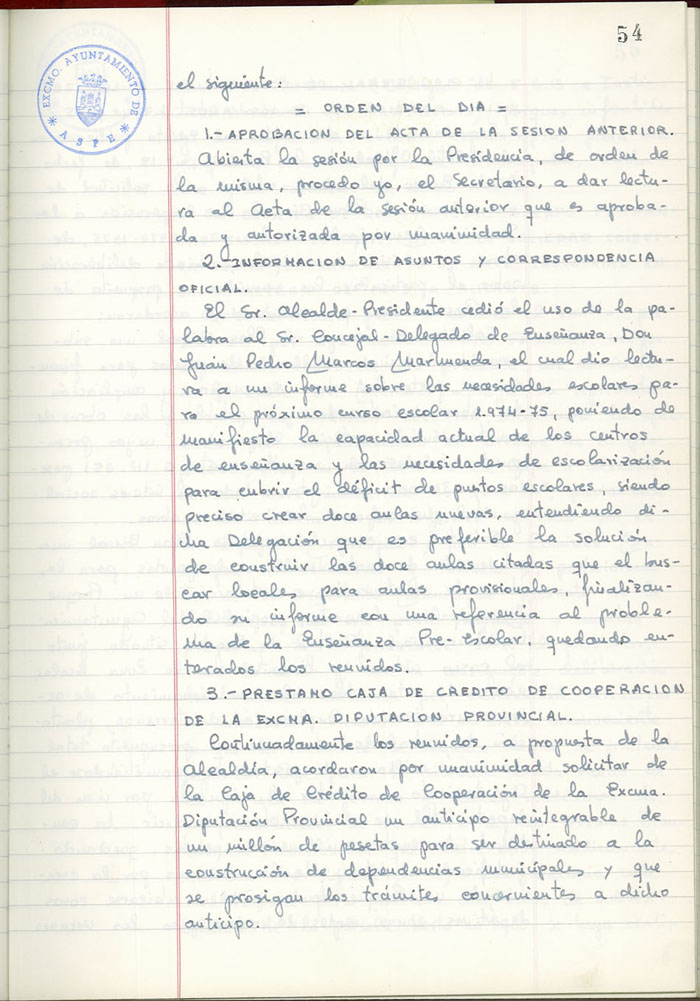 54
EXCMO. AYUNTAMIENTO DE
* ASPE *
el siguiente:
= ORDEN DEL DIA =
1.- APROBACION DEL ACTA DE LA SESION ANTERIOR.
Abierta la sesión por la Presidencia, de orden de
la misma, procedo yo, el Secretario, a dar lectu-
ra al Acta de la sesión anterior que es aproba-
da y autorizada por unanimidad.
2.- INFORMACION DE ASUNTOS Y CORRESPONDENCIA
OFICIAL.
El Sr. Alcalde-Presidente cedió el uso de la pa-
labra al Sr. Concejal-Delegado de Enseñanza, Don
Juán Pedro Marcos Marmenda, el cual dio lectu-
ra a un informe sobre las necesidades escolares pa-
ra el próximo curso escolar 1.974-75, poniendo de
manifiesto la capacidad actual de los centros
de enseñanza y las necesidades de escolarización
para cubrir el déficit de puntos escolares, siendo
preciso crear doce aulas nuevas, entendiendo di-
cha Delegación que es preferible la solución
de construir las doce aulas citadas que el bus-
car locales para aulas provisionales, finalizan-
do su informe con una referencia al proble-
ma de la Enseñanza Pre-Escolar, quedando en-
terados los reunidos.
3.- PRESTAMO CAJA DE CREDITO DE COOPERACION
DE LA EXCMA. DIPUTACION PROVINCIAL.
Continuadamente los reunidos, a propuesta de la
Alcaldía, acordaron por unanimidad solicitar de
la Caja de Crédito de Cooperación de la Excma.
Diputación Provincial un anticipo reintegrable de
un millón de pesetas para ser destinado a la
construcción de dependencias municipales y que
se prosigan los trámites concernientes a dicho
anticipo.